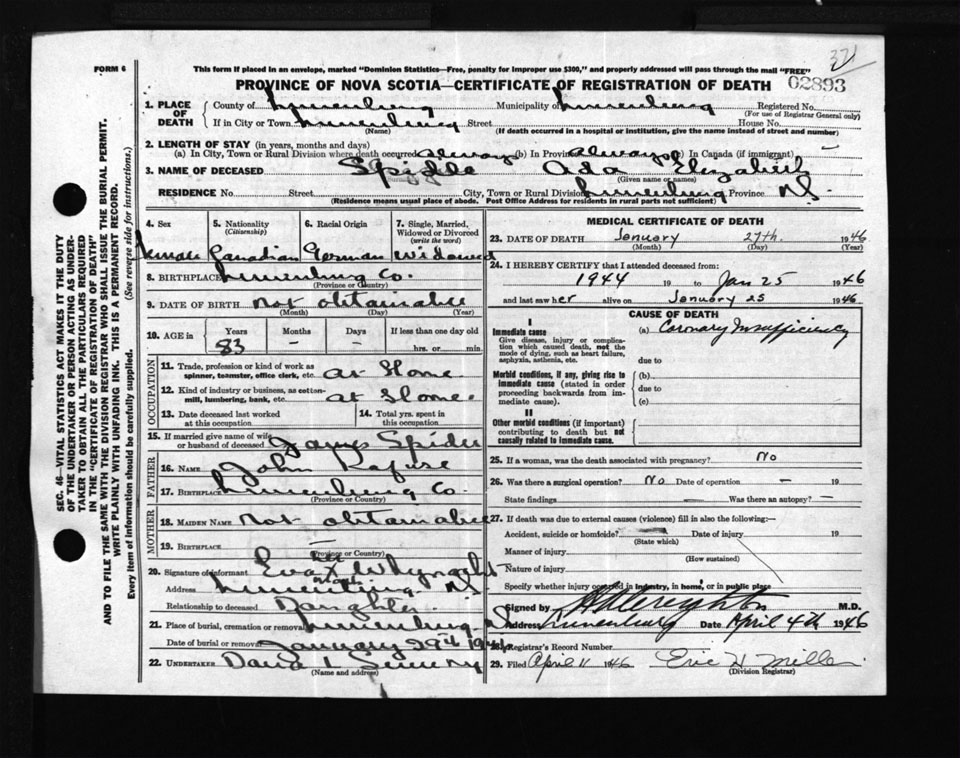 371
FORM 6
This form if placed in an envelope, marked "Dominion Statistics—Free, penalty for improper use $300," and properly addressed will pass through the mail "FREE"
PROVINCE OF NOVA SCOTIA—CERTIFICATE OF REGISTRATION OF DEATH 02893
1. PLACE OF DEATH
County of Lunenburg Municipality of Lunenburg Registered No.
(For use of Registrar General only)
If in City or Town Lunenburg Street House No.
(Name) (If death occurred in a hospital or institution, give the name instead of street and number)
2. LENGTH OF STAY (in years, months and days)
(a) In City, Town or Rural Division where death occurred always (b) In Province always (c) In Canada (if immigrant) —
3. NAME OF DECEASED Spidle Ada Elizabeth
(Surname) (Given name or names)
RESIDENCE No. Street City, Town or Rural Division Lunenburg Province N.S.
(Residence means usual place of abode. Post Office Address for residents in rural parts not sufficient)
4. Sex
5. Nationality (Citizenship)
6. Racial Origin
7. Single, Married, Widowed or Divorced (write the word)
Female Canadian German Widowed
8. BIRTHPLACE Lunenburg Co.
(Province or Country)
9. DATE OF BIRTH Not obtainable
(Month) (Day) (Year)
10. AGE in Years Months Days If less than one day old
83 — — hrs. or min.
OCCUPATION
11. Trade, profession or kind of work as spinner, teamster, office clerk, etc. at Home
12. Kind of industry or business, as cotton-mill, lumbering, bank, etc. at Home
13. Date deceased last worked at this occupation
14. Total yrs. spent in this occupation
15. If married give name of wife or husband of deceased James Spidle
FATHER
16. NAME John Rafuse
17. BIRTHPLACE Lunenburg Co.
(Province or Country)
MOTHER
18. MAIDEN NAME Not obtainable
19. BIRTHPLACE
(Province or Country)
20. Signature of informant Eva X Whynacht
her
mark
Address Lunenburg N.S.
Relationship to deceased Daughter
21. Place of burial, cremation or removal Lunenburg
Date of burial or removal January 29th 1946
22. UNDERTAKER
(Name and address)
MEDICAL CERTIFICATE OF DEATH
23. DATE OF DEATH January 27th. 1946
(Month) (Day) (Year)
24. I HEREBY CERTIFY that I attended deceased from:
1944 19 to Jan 25 1946
and last saw her alive on January 25 1946
CAUSE OF DEATH
I
Immediate cause (a) Coronary Insufficiency
Give disease, injury or complication which caused death, not the mode of dying, such as heart failure, asphyxia, asthenia, etc.
due to
Morbid conditions, if any, giving rise to immediate cause (stated in order proceeding backwards from immediate cause).
(b)
due to
(c)
II
Other morbid conditions (if important) contributing to death but not causally related to immediate cause.
25. If a woman, was the death associated with pregnancy? No
26. Was there a surgical operation? No Date of operation — 19
State findings — Was there an autopsy? —
27. If death was due to external causes (violence) fill in also the following:—
Accident, suicide or homicide? Date of injury 19
(State which)
Manner of injury
(How sustained)
Nature of injury
Specify whether injury occurred in industry, in home, or in public place
Signed by M.D.
Address Lunenburg Date April 4th 1946
28. Registrar's Record Number
29. Filed April 11 1946 Eric H. Miller
(Division Registrar)
SEC. 46—VITAL STATISTICS ACT MAKES IT THE DUTY
OF THE UNDERTAKER OR PERSON ACTING AS UNDER-
TAKER TO OBTAIN ALL THE PARTICULARS REQUIRED
IN THE "CERTIFICATE OF REGISTRATION OF DEATH"
AND TO FILE THE SAME WITH THE DIVISION REGISTRAR WHO SHALL ISSUE THE BURIAL PERMIT.
WRITE PLAINLY WITH UNFADING INK. THIS IS A PERMANENT RECORD.
Every item of information should be carefully supplied. (See reverse side for instructions.)